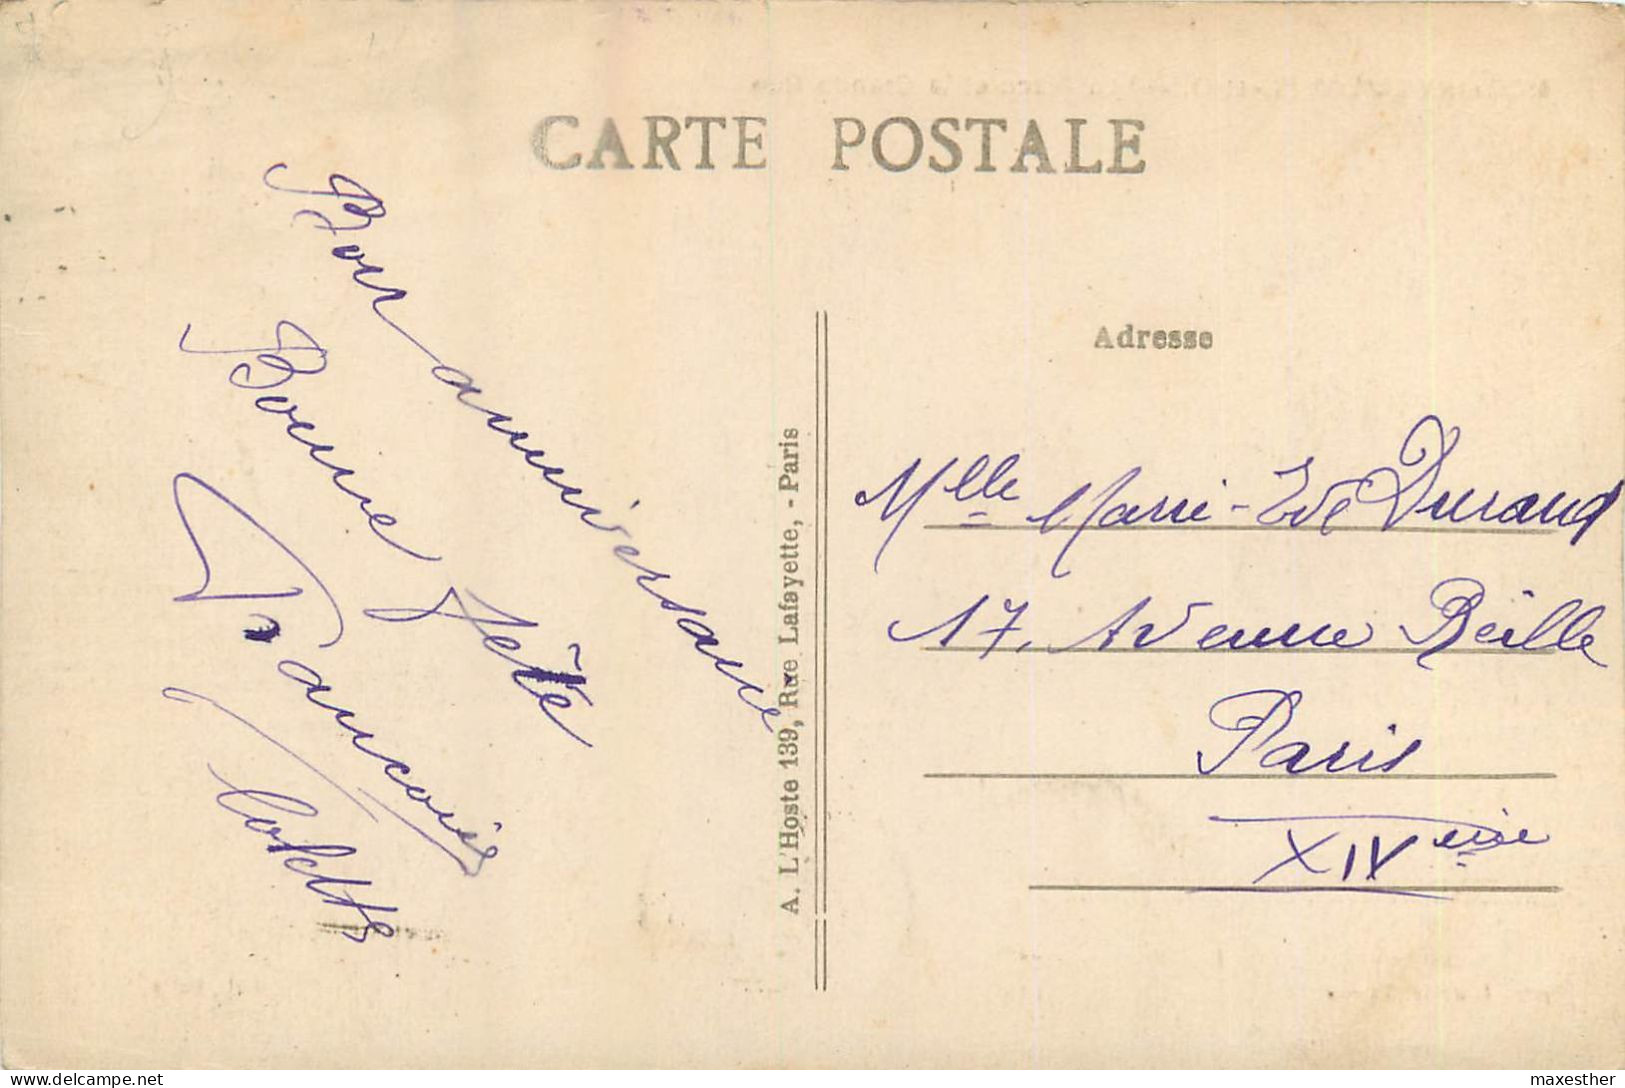 CARTE POSTALE
Bon anniversaire
Bonne fête
Francoise
Colette
A. L'Hoste 139, Rue Lafayette, - Paris
Adresse
Mlle Marie-Eve Durand
17, Avenue Reille
Paris
XIVeme
delcampe.net
maxesther